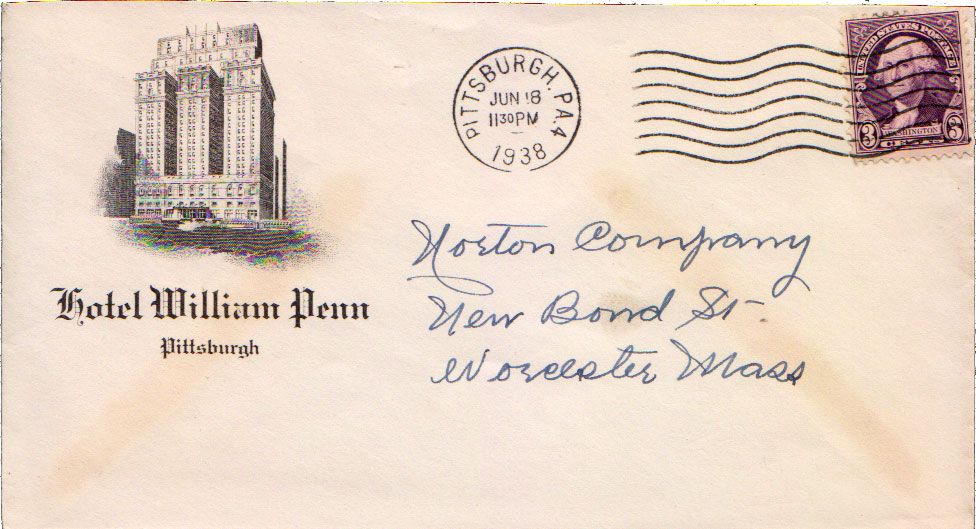 Hotel William Penn
Pittsburgh
PITTSBURGH, PA. 4
JUN 18
11 30 PM
1938
UNITED STATES POSTAGE
WASHINGTON
3 3
Norton Company
New Bond St.
Worcester Mass